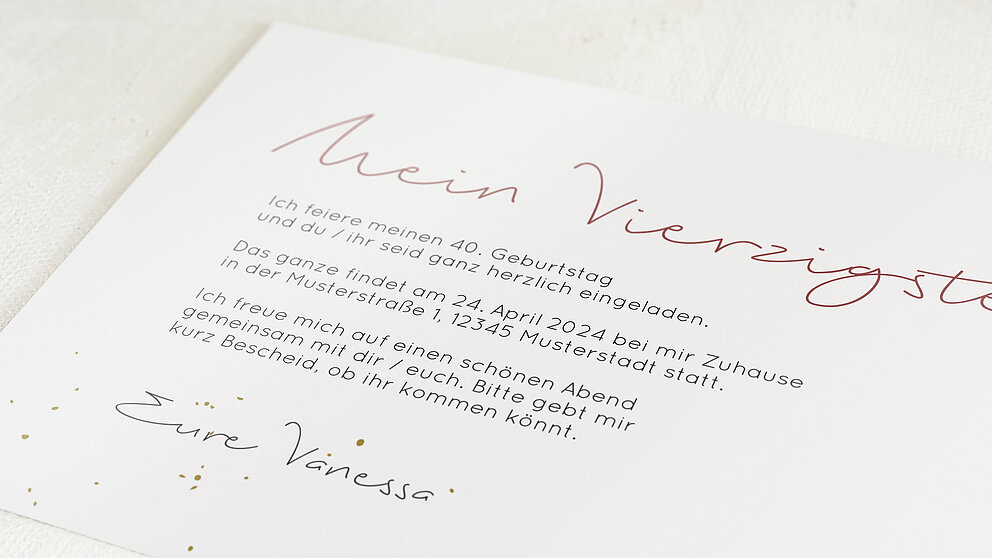 Mein Vierzigste
Ich feiere meinen 40. Geburtstag
und du / ihr seid ganz herzlich eingeladen.
Das ganze findet am 24. April 2024 bei mir Zuhause
in der Musterstraße 1, 12345 Musterstadt statt.
Ich freue mich auf einen schönen Abend
gemeinsam mit dir / euch. Bitte gebt mir
kurz Bescheid, ob ihr kommen könnt.
Eure Vanessa